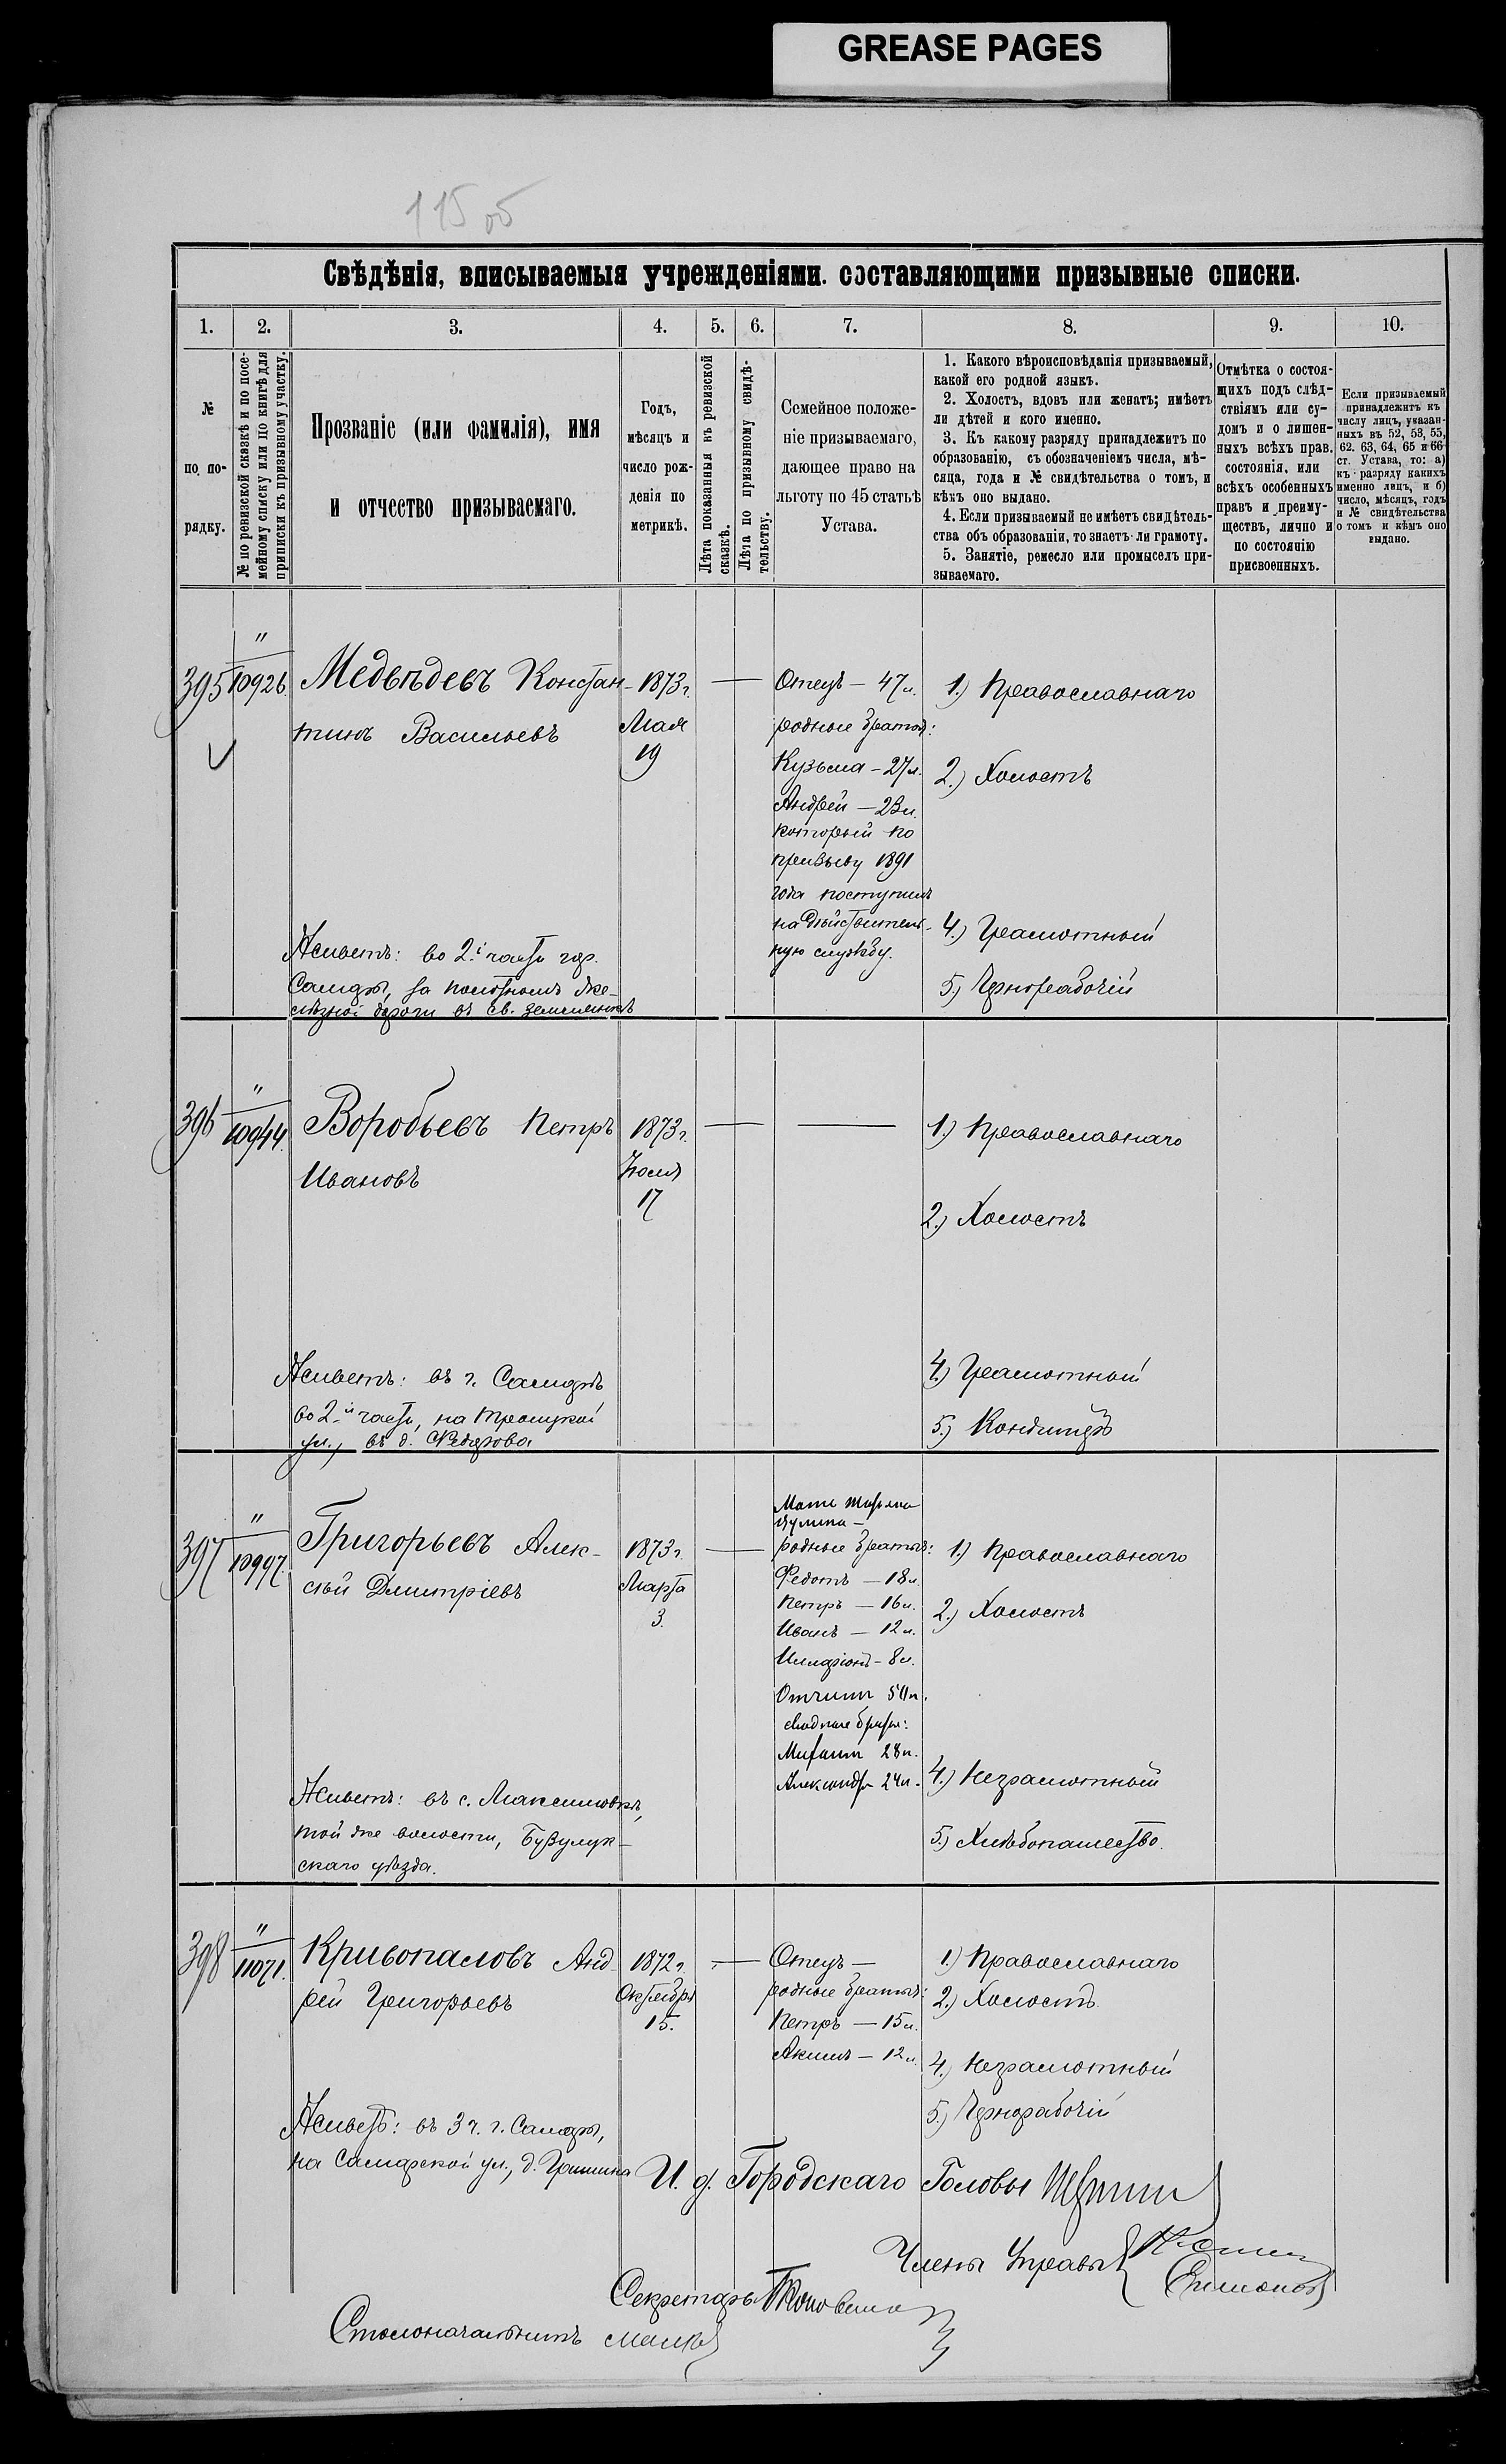 GREASE PAGES
115 об
Свѣдѣнія, вписываемыя учрежденіями. составляющими призывные списки.
1.
2.
3.
4.
5.
6.
7.
8.
9.
10.
№
по по-
рядку.
№ по ревизской сказкѣ и по посе-
мейному списку или по книгѣ для
приписки къ призывному участку.
Прозваніе (или фамилія), имя
и отчество призываемаго.
Годъ,
мѣсяцъ и
число рож-
денія по
метрикѣ.
Лѣта показанныя въ ревизской
сказкѣ.
Лѣта по призывному свидѣ-
тельству.
Семейное положе-
ніе призываемаго,
дающее право на
льготу по 45 статьѣ
Устава.
1. Какого вѣроисповѣданія призываемый,
какой его родной языкъ.
2. Холостъ, вдовъ или женатъ; имѣетъ
ли дѣтей и кого именно.
3. Къ какому разряду принадлежитъ по
образованію, съ обозначеніемъ числа, мѣ-
сяца, года и № свидѣтельства о томъ, и
кѣмъ оно выдано.
4. Если призываемый не имѣетъ свидѣтель-
ства объ образованіи, то знаетъ ли грамоту.
5. Занятіе, ремесло или промыселъ при-
зываемаго.
Отмѣтка о состоя-
щихъ подъ слѣд-
ствіямъ или су-
домъ и о лишен-
ныхъ всѣхъ прав.
состоянія, или
всѣхъ особенныхъ
правъ и преиму-
ществъ, лично и
по состоянію
присвоенныхъ.
Если призываемый
принадлежитъ къ
числу лицъ, указан-
ныхъ въ 52, 53, 55,
62. 63, 64, 65 и 66
ст. Устава, то: а)
къ разряду какихъ
именно лицъ, и б)
число, мѣсяцъ, годъ
и № свидѣтельства
о томъ и кѣмъ оно
выдано.
395
"
10926.
Медвѣдевъ Констан-
тинъ Васильевъ
1873 г.
Мая
19
Отецъ — 47 л.
родные братья:
Кузьма — 27 л.
Андрей — 23 л.
который по
призыву 1891
года поступилъ
на дѣйствитель-
ную службу.
1.) Православнаго
2.) Холостъ
4.) Грамотный
5.) Чернорабочій
Живетъ: во 2й части гор.
Самары, за полотномъ же-
лѣзной дороги въ св. землянкѣ
396
"
10944.
Воробьевъ Петръ
Ивановъ
1873 г.
Іюля
17
1.) Православнаго
2.) Холостъ
4.) Грамотный
5.) Кондитеръ
Живетъ: въ г. Самарѣ
во 2й части, на Троицкой
ул., въ д. Федорова
397
"
10997.
Григорьевъ Алек-
сѣй Дмитріевъ
1873 г.
Марта
3.
Мать
родные братья:
Федотъ — 18 л.
Петръ — 16 л.
Иванъ — 12 л.
Иларіонъ — 8 л.
Отчимъ
сводные братья:
28 л.
Александръ 24 л.
1.) Православнаго
2.) Холостъ
4.) Неграмотный
5.) Хлѣбопашество.
Живетъ: въ с. Максимовкѣ,
той же волости, Бузулук-
скаго уѣзда.
398
"
11071.
Кривопаловъ Анд-
рей Григорьевъ
1872 г.
Октября
15.
Отецъ —
родные братья:
Петръ — 15 л.
Акимъ — 12 л.
1.) Православнаго
2.) Холостъ
4.) Неграмотный
5.) Чернорабочій
Живетъ: въ 3 ч. г. Самары,
на Самарской ул., д. Гришина
И. д. Городскаго Головы
Члены Управы
Секретарь
Столоначальникъ